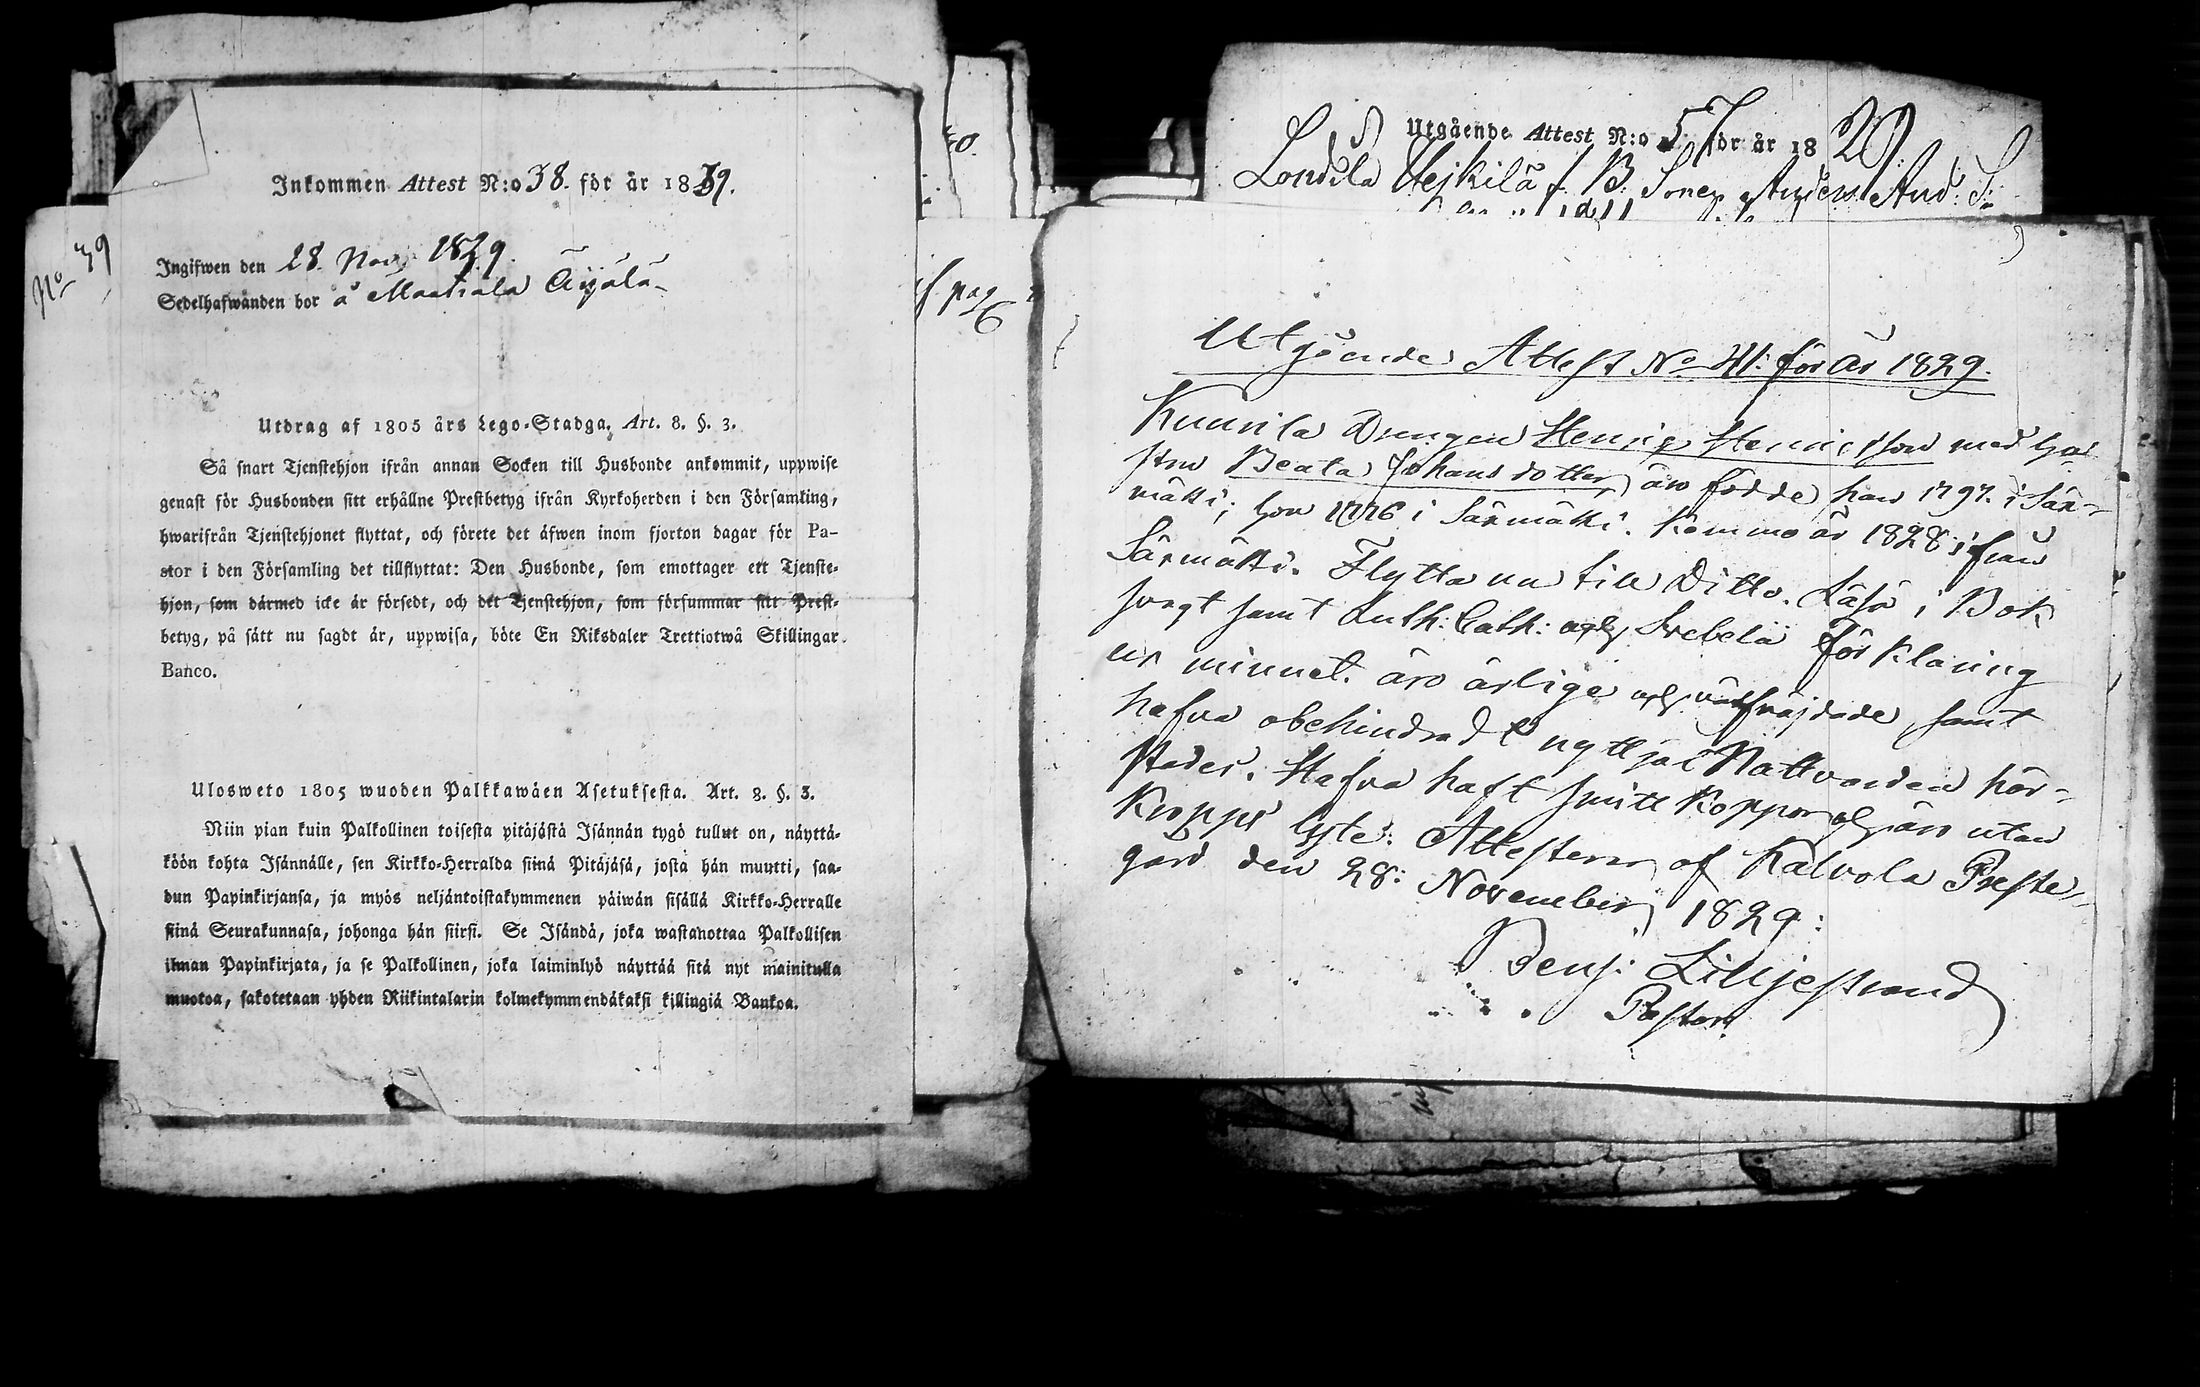 Inkommen Attest N:o 38. för år 1829.
No 39
Ingifwen den 28. Nov. 1829.
Sedelhafwanden bor å
Utdrag af 1805 års Lego-Stadga. Art. 8. §. 3.
Så snart Tjenstehjon ifrån annan Socken till Husbonde ankommit, uppwise
genast för Husbonden sitt erhållne Prestbetyg ifrån Kyrkoherden i den Församling,
hwarifrån Tjenstehjonet flyttat, och förete det äfwen inom fjorton dagar för Pa-
stor i den Församling det tillflyttat: Den Husbonde, som emottager ett Tjenste-
hjon, som därmed icke är försedt, och det Tjenstehjon, som försummar sitt Prest-
betyg, på sätt nu sagdt är, uppwisa, böte En Riksdaler Trettiotwå Skillingar
Banco.
Ulosweto 1805 wuoden Palkkawäen Asetuksesta. Art. 8. §. 3.
Niin pian kuin Palkollinen toisesta pitäjästä Isännän tygö tullut on, näyttä-
köön kohta Isännälle, sen Kirkko-Herralda siinä Pitäjäsä, josta hän muutti, saa-
dun Papinkirjansa, ja myös neljäntoistakymmenen päiwän sisällä Kirkko-Herralle
siinä Seurakunnasa, johonga hän siirsi. Se Isändä, joka wastanottaa Palkollisen
ilman Papinkirjata, ja se Palkollinen, joka laiminlyö näyttää sitä nyt mainitulla
muotoa, sakotetaan yhden Riikintalarin kolmekymmendäkaksi killingiä Bankoa.
pag
6
Utgående Attest N:o 57 för år 1829.
Heikilä f. B. Anders And: S:
Utgående Attest No 41: för År 1829.
Kunnila Drengen Henrik Henricsson med hu-
stru Beata Johansdotter, äro födde han 1797. i Sär-
mäkki; hon 1776 i Särmäkki. Kommo år 1828 ifrån
Särmäkki. Flytta nu till Ditto. Läsa i Bok
svagt samt Luth: Cath: och Svebelii Förklaring
ur minnet. äro ärlige och välfräjdade, samt
hafva obehindradt nyttjat Nattvarden här-
städes. Hafva haft smitt Koppor och äro utan
Kropps lyte. Attesterar af Kalvola Preste-
gård den 28: November 1829:
Benj: Liljestrand
Pastor.